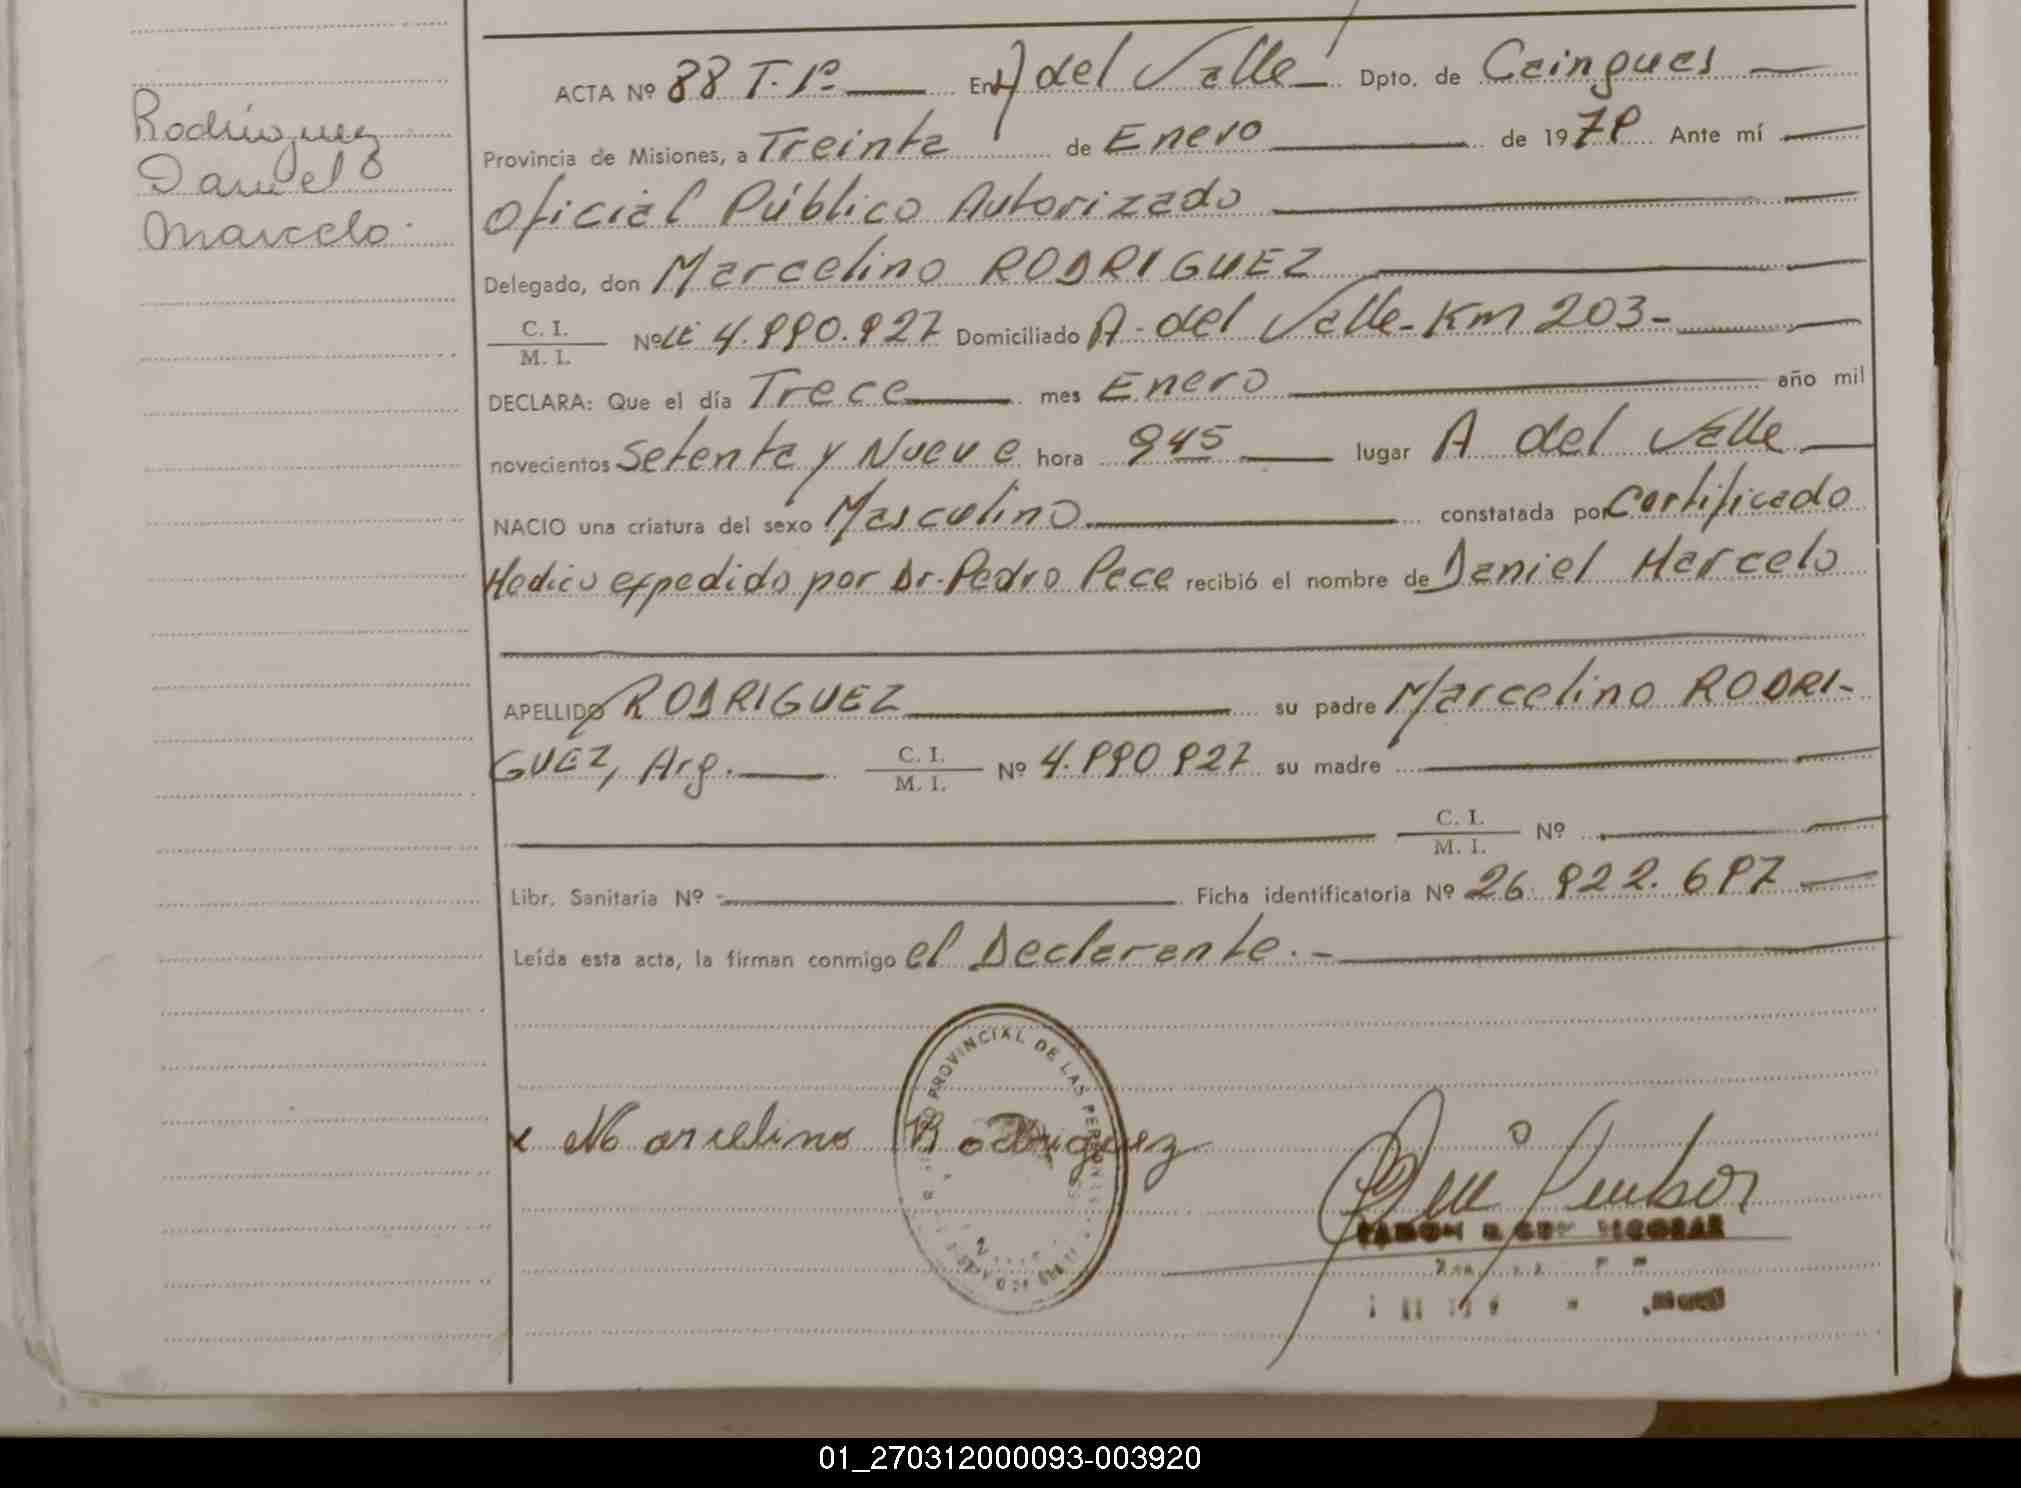 Rodriguez
Daniel
Marcelo.
ACTA Nº 88 T. 1º En A del Valle Dpto. de Caingues
Provincia de Misiones, a Treinta de Enero de 1979 Ante mí
Oficial Público Autorizado
Delegado, don Marcelino RODRIGUEZ
C. I.
M. I. Nº LE 4.990.927 Domiciliado A. del Valle - Km 203-
DECLARA: Que el día Trece mes Enero año mil
novecientos Setenta y Nueve hora 945 lugar A del Valle
NACIO una criatura del sexo Masculino constatada por Certificado
Medico expedido por Dr. Pedro Pece recibió el nombre de Daniel Marcelo
APELLIDO RODRIGUEZ su padre Marcelino RODRI-
GUEZ, Arg. C. I.
M. I. Nº 4.990 927 su madre
C. I.
M. I. Nº
Libr. Sanitaria Nº Ficha identificatoria Nº 26.922.697
Leída esta acta, la firman conmigo el Declarante.-
PROVINCIAL DE LAS PERSONAS
x Marcelino Rodriguez
01_270312000093-003920